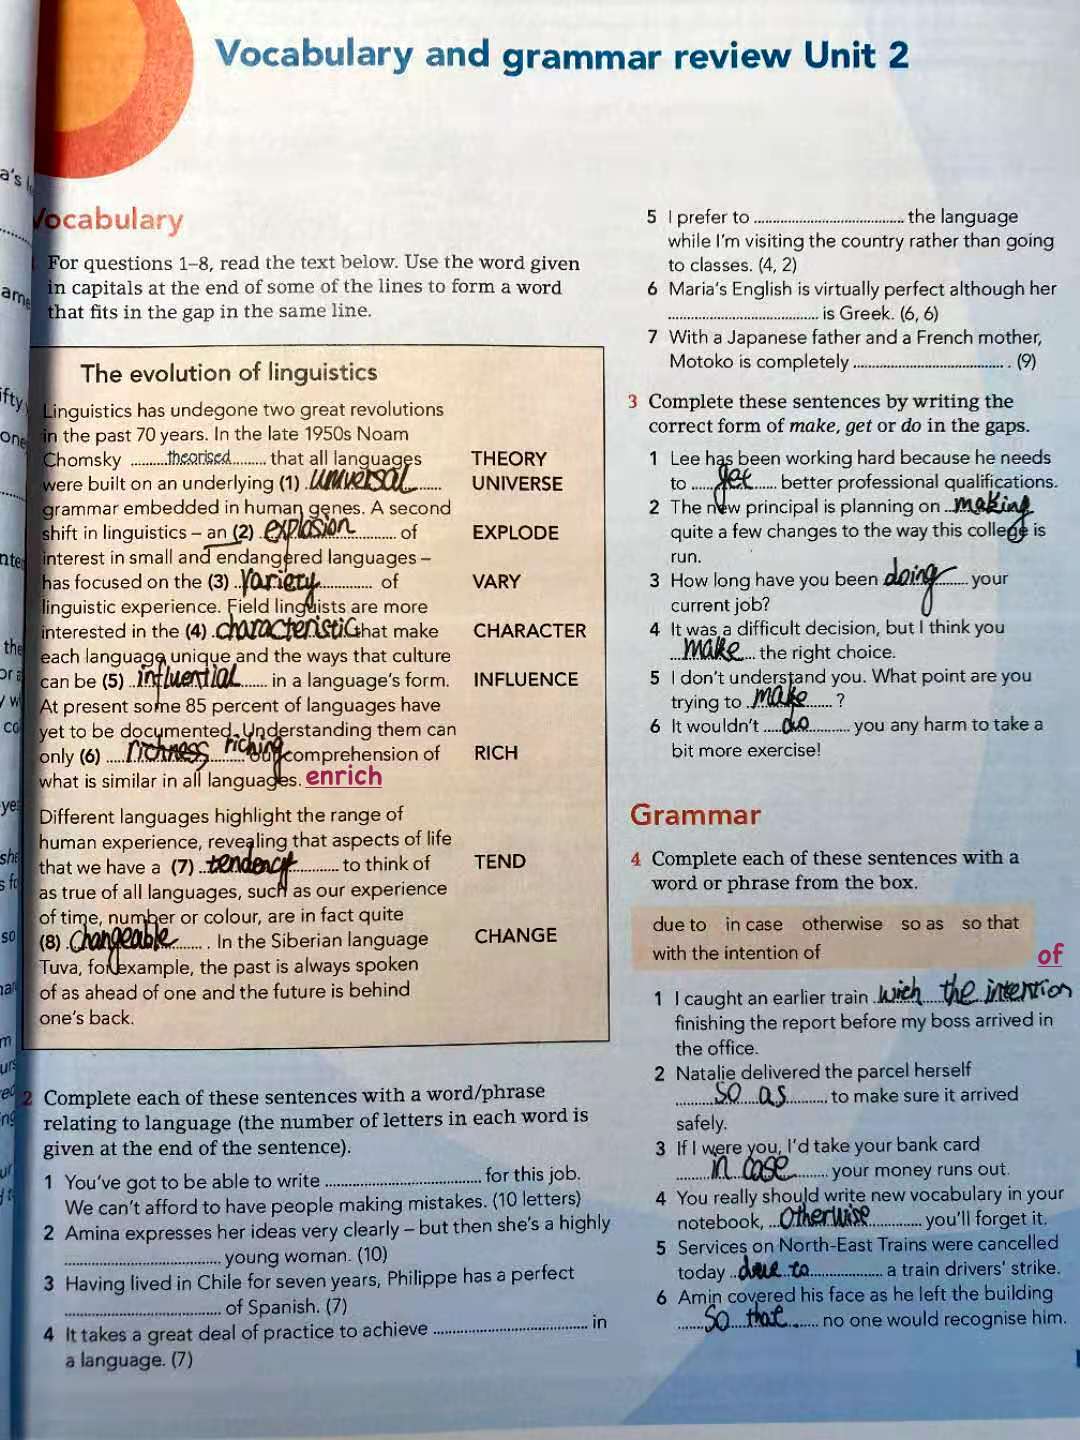 Vocabulary and grammar review Unit 2
Vocabulary
For questions 1–8, read the text below. Use the word given
in capitals at the end of some of the lines to form a word
that fits in the gap in the same line.
The evolution of linguistics
Linguistics has undegone two great revolutions
in the past 70 years. In the late 1950s Noam
Chomsky theorised that all languages THEORY
were built on an underlying (1) universal UNIVERSE
grammar embedded in human genes. A second
shift in linguistics – an (2) explosion of EXPLODE
interest in small and endangered languages –
has focused on the (3) variety of VARY
linguistic experience. Field linguists are more
interested in the (4) characteristic that make CHARACTER
each language unique and the ways that culture
can be (5) influential in a language's form. INFLUENCE
At present some 85 percent of languages have
yet to be documented. Understanding them can
only (6) richness riching our comprehension of RICH
what is similar in all languages. enrich
Different languages highlight the range of
human experience, revealing that aspects of life
that we have a (7) tendency to think of TEND
as true of all languages, such as our experience
of time, number or colour, are in fact quite
(8) Changeable . In the Siberian language CHANGE
Tuva, for example, the past is always spoken
of as ahead of one and the future is behind
one's back.
2 Complete each of these sentences with a word/phrase
relating to language (the number of letters in each word is
given at the end of the sentence).
1 You've got to be able to write ........ for this job.
We can't afford to have people making mistakes. (10 letters)
2 Amina expresses her ideas very clearly – but then she's a highly
........ young woman. (10)
3 Having lived in Chile for seven years, Philippe has a perfect
........ of Spanish. (7)
4 It takes a great deal of practice to achieve ........ in
a language. (7)
5 I prefer to ........ the language
while I'm visiting the country rather than going
to classes. (4, 2)
6 Maria's English is virtually perfect although her
........ is Greek. (6, 6)
7 With a Japanese father and a French mother,
Motoko is completely ........ . (9)
3 Complete these sentences by writing the
correct form of make, get or do in the gaps.
1 Lee has been working hard because he needs
to get better professional qualifications.
2 The new principal is planning on making
quite a few changes to the way this college is
run.
3 How long have you been doing your
current job?
4 It was a difficult decision, but I think you
make the right choice.
5 I don't understand you. What point are you
trying to make ?
6 It wouldn't do you any harm to take a
bit more exercise!
Grammar
4 Complete each of these sentences with a
word or phrase from the box.
due to in case otherwise so as so that
with the intention of
of
1 I caught an earlier train with the intention
finishing the report before my boss arrived in
the office.
2 Natalie delivered the parcel herself
so as to make sure it arrived
safely.
3 If I were you, I'd take your bank card
in case your money runs out.
4 You really should write new vocabulary in your
notebook, Otherwise you'll forget it.
5 Services on North-East Trains were cancelled
today due to a train drivers' strike.
6 Amin covered his face as he left the building
So that no one would recognise him.